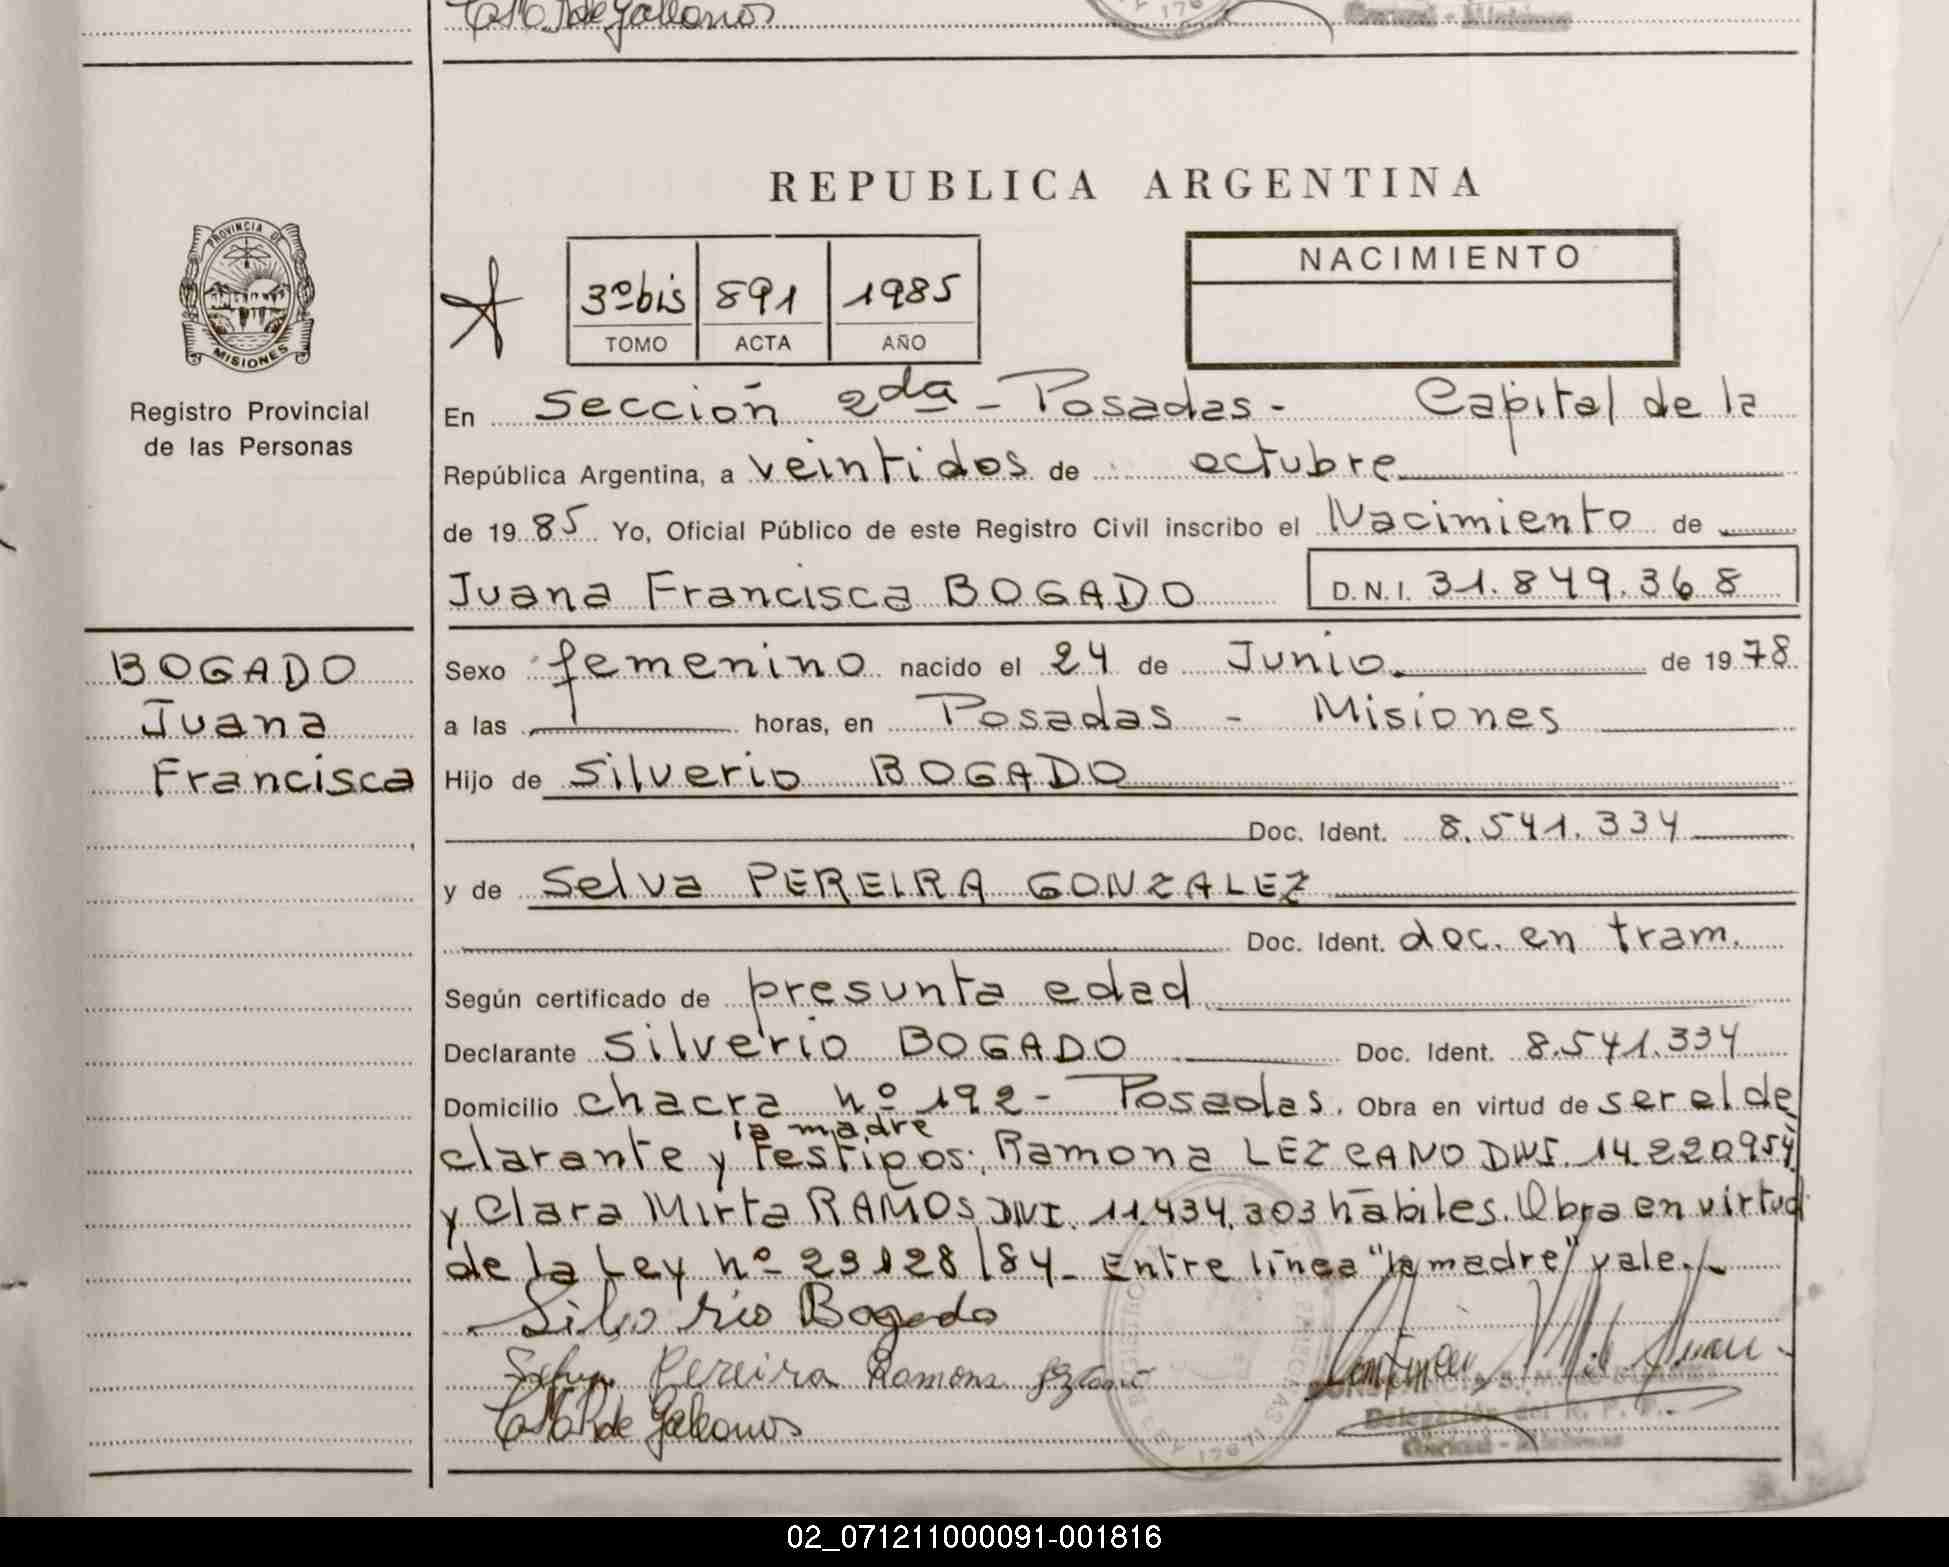 PROVINCIA DE
MISIONES
Registro Provincial
de las Personas
REPUBLICA ARGENTINA
NACIMIENTO
3º bis 891 1985
TOMO ACTA AÑO
En Sección 2da - Posadas - Capital de la
República Argentina, a veintidos de octubre
de 1985 Yo, Oficial Público de este Registro Civil inscribo el Nacimiento de
Juana Francisca BOGADO D.N.I. 31.849.368
BOGADO
Juana
Francisca
Sexo femenino nacido el 24 de Junio de 1978
a las horas, en Posadas - Misiones
Hijo de Silverio BOGADO
Doc. Ident. 8.541.334
y de Selva PEREIRA GONZALEZ
Doc. Ident. doc. en tram.
Según certificado de presunta edad
Declarante Silverio BOGADO Doc. Ident. 8.541.334
Domicilio chacra nº 192 - Posadas. Obra en virtud de ser el de
la madre
clarante y testigos: Ramona LEZCANO DNI. 14.220954
y Clara Mirta RAMOS DNI. 11.434.303 hábiles. Obra en virtud
de la Ley nº 23128/84 - Entre línea "la madre" vale.
Silverio Bogado
Selva Pereira Ramona
Delegación del R. P. P.
02_071211000091-001816